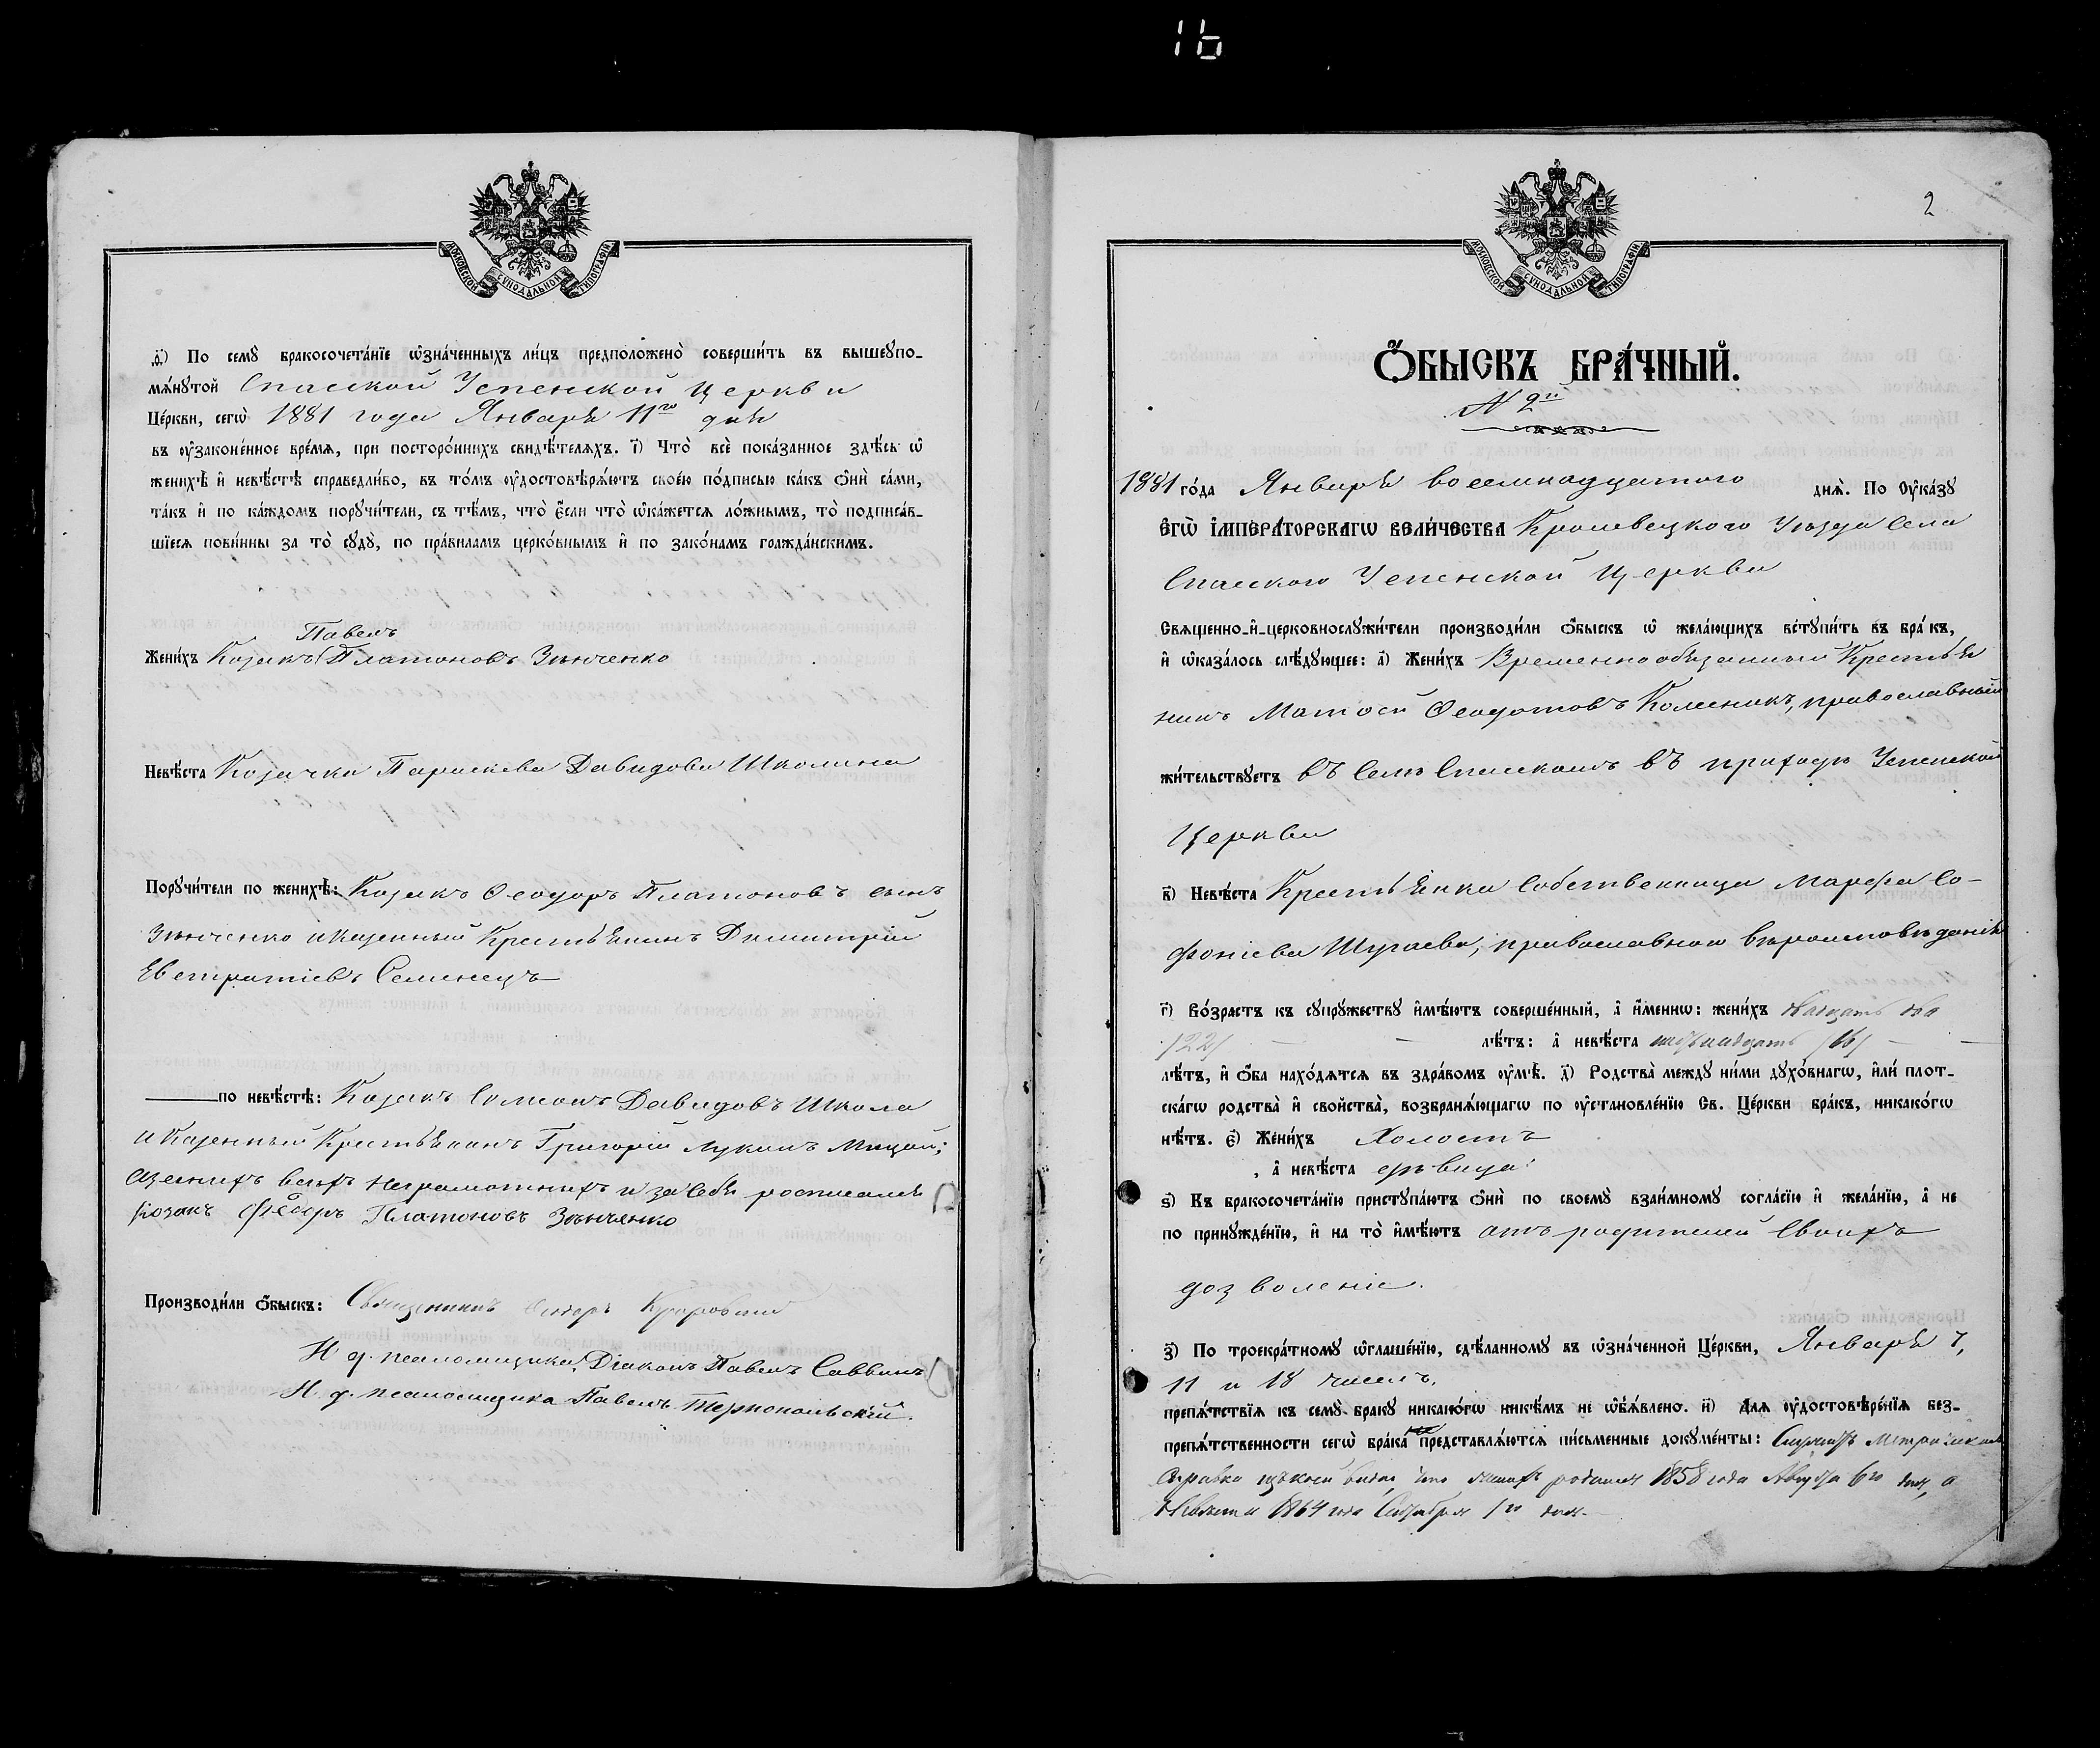 16
МОСКОВСКОЙ СѴНОДАЛЬНОЙ ТИПОГРАФІИ
ѳ҃) По семꙋ̀ бракосочета́нїе ѡ҆зна́ченныхъ ли́цъ предположено̀ соверши́ть въ вышеꙋпо-
мѧ́нꙋтой Спасской Успенской Церкви
Це́ркви, сегѡ̀ 1881 года Января 11го дня
въ ᲂу҆законе́нное вре́мѧ, при посторо́ннихъ свидѣ́телѧхъ. і҃) Что̀ всѐ пока́занное здѣ́сь ѡ҆
женихѣ̀ и҆ невѣ́стѣ справедли́во, въ то́мъ ᲂу҆достовѣрѧ́ютъ свое́ю по́дписью ка́къ ѻ҆нѝ са́ми,
та́къ и҆ по ка́ждомъ порꙋчи́тели, съ тѣ́мъ, что̀ є҆́сли что̀ ѡ҆ка́жетсѧ ло́жнымъ, то̀ подписа́в-
шїесѧ пови́нны за то̀ сꙋдꙋ̀, по пра́виламъ церко́внымъ и҆ по зако́намъ гражда́нскимъ.
Павелъ
Жени́хъ Козакъ Платоновъ Зѣнченко
Невѣ́ста Козачка Параскева Давидова Школина
Порꙋчи́тели по женихѣ̀: Козакъ Ѳеодоръ Платоновъ сынъ
Зѣнченко и Казенный Крестьянинъ Димитрій
Евстратіевъ Семенецъ
по невѣ́стѣ: Козакъ Симеонъ Давидовъ Школа
и Казенный Крестьянинъ Григорій Лукинъ Мицай;
а за нихъ всѣхъ неграмотныхъ и за себя росписался
козакъ Федоръ Платоновъ Зѣнченко
Производи́ли ѻ҆́быскъ: Священникъ
И. д. псаломщика, Діаконъ Павелъ Саввинъ
И. д. псаломщика Павелъ Тернопольскій.
2
МОСКОВСКОЙ СѴНОДАЛЬНОЙ ТИПОГРАФІИ
Ѻ҆́БЫСКЪ БРА́ЧНЫЙ.
N 2й
1881 го́да Января восемнадцатого днѧ̀. По ᲂу҆ка́зꙋ
є҆гѡ̀ і҆мпера́торскагѡ вели́чества Кролевецкого Уѣзда Села
Спасского Успенской Церкви
Свѧщенно-и҆-церковнослꙋжи́тели производи́ли ѻ҆́быскъ ѡ҆ жела́ющихъ встꙋпи́ть въ бра́къ,
и҆ ѡ҆каза́лось слѣ́дꙋющее: а҃) Жени́хъ Временнообязанный Крестья
нинъ Матѳей Ѳеодотовъ Колесникъ, православный
жи́тельствꙋетъ въ Селѣ Спасскомъ въ приходѣ Успенской
Церкви
в҃) Невѣ́ста Крестьянка Собственница Марѳа Со-
фоніева Шугаева, православного вѣроисповѣданія
г҃) Во́зрастъ къ сꙋпрꙋ́жествꙋ и҆мѣ́ютъ соверше́нный, а҆ и҆́меннѡ: жени́хъ двадцать два
/22/ — — лѣ́тъ: а҆ невѣ́ста шестнадцать /16/ — —
лѣ́тъ, и҆ ѻ҆́ба нахо́дѧтсѧ въ здра́вомъ ᲂу҆мѣ̀. д҃) Родства̀ междꙋ ни́ми дꙋхо́внагѡ, и҆лѝ плот-
ска́гѡ родства̀ и҆ свойства̀, возбранѧ́ющагѡ по ᲂу҆становле́нїю Св. Це́ркви бра́къ, никако́гѡ
нѣ́тъ. є҃) Жени́хъ Холостъ
, а҆ невѣ́ста дѣвица.
ѕ҃) Къ бракосочета́нїю пристꙋпа́ютъ ѻ҆нѝ по своемꙋ̀ взаи́мномꙋ согла́сїю и҆ жела́нїю, а҆ не
по принꙋжде́нїю, и҆ на то̀ и҆мѣ́ютъ отъ родителей своихъ
дозволеніе.
з҃) По троекра́тномꙋ ѡ҆глаше́нїю, сдѣ́ланномꙋ въ ѡ҆зна́ченной Це́ркви, Января 7,
11 и 18 чиселъ,
препѧ́тствїѧ къ семꙋ̀ бракꙋ никако́гѡ никѣ́мъ не ѡ҆бъѧ́влено. и҃) Длѧ ᲂу҆достовѣре́нїѧ без-
препѧ́тственности сегѡ̀ бра́ка представлѧ́ютсѧ пи́сьменные докꙋме́нты:
справка родился 1858 года Августа 6го дня, а
Невѣста 1864 года 1го дня.